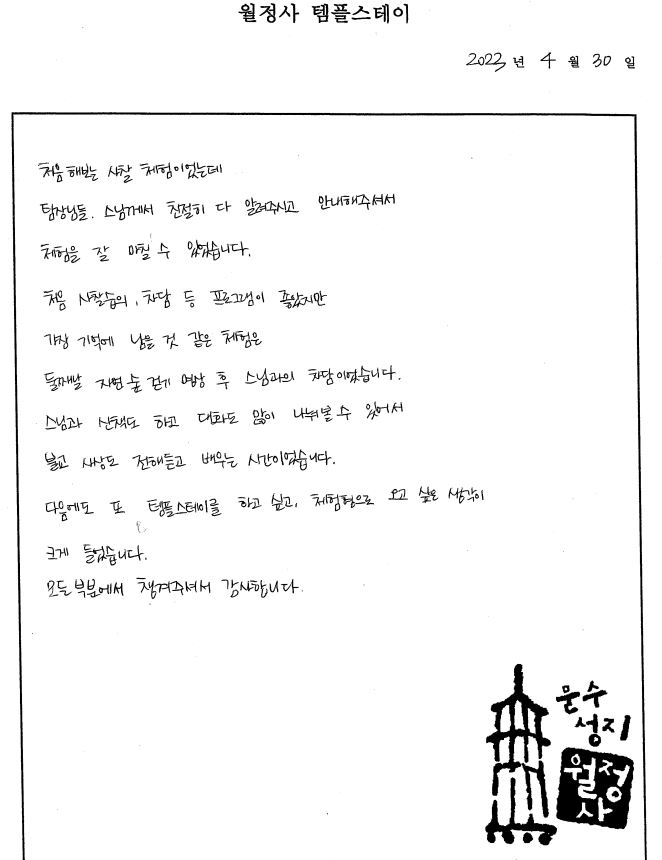 월정사 템플스테이
2023 년 4 월 30 일
처음 해보는 사찰 체험이었는데
팀장님들, 스님께서 친절히 다 알려주시고 안내해주셔서
체험을 잘 마칠 수 있었습니다.
처음 사찰습의, 차담 등 프로그램이 좋았지만
가장 기억에 남을 것 같은 체험은
둘째날 자연 숲 걷기 명상 후 스님과의 차담이었습니다.
스님과 산책도 하고 대화도 많이 나눠볼 수 있어서
불교 사상도 전해듣고 배우는 시간이었습니다.
다음에도 또 템플스테이를 하고 싶고, 체험형으로 오고 싶은 생각이
크게 들었습니다.
모든 부분에서 챙겨주셔서 감사합니다.
문수
성지
월정
사